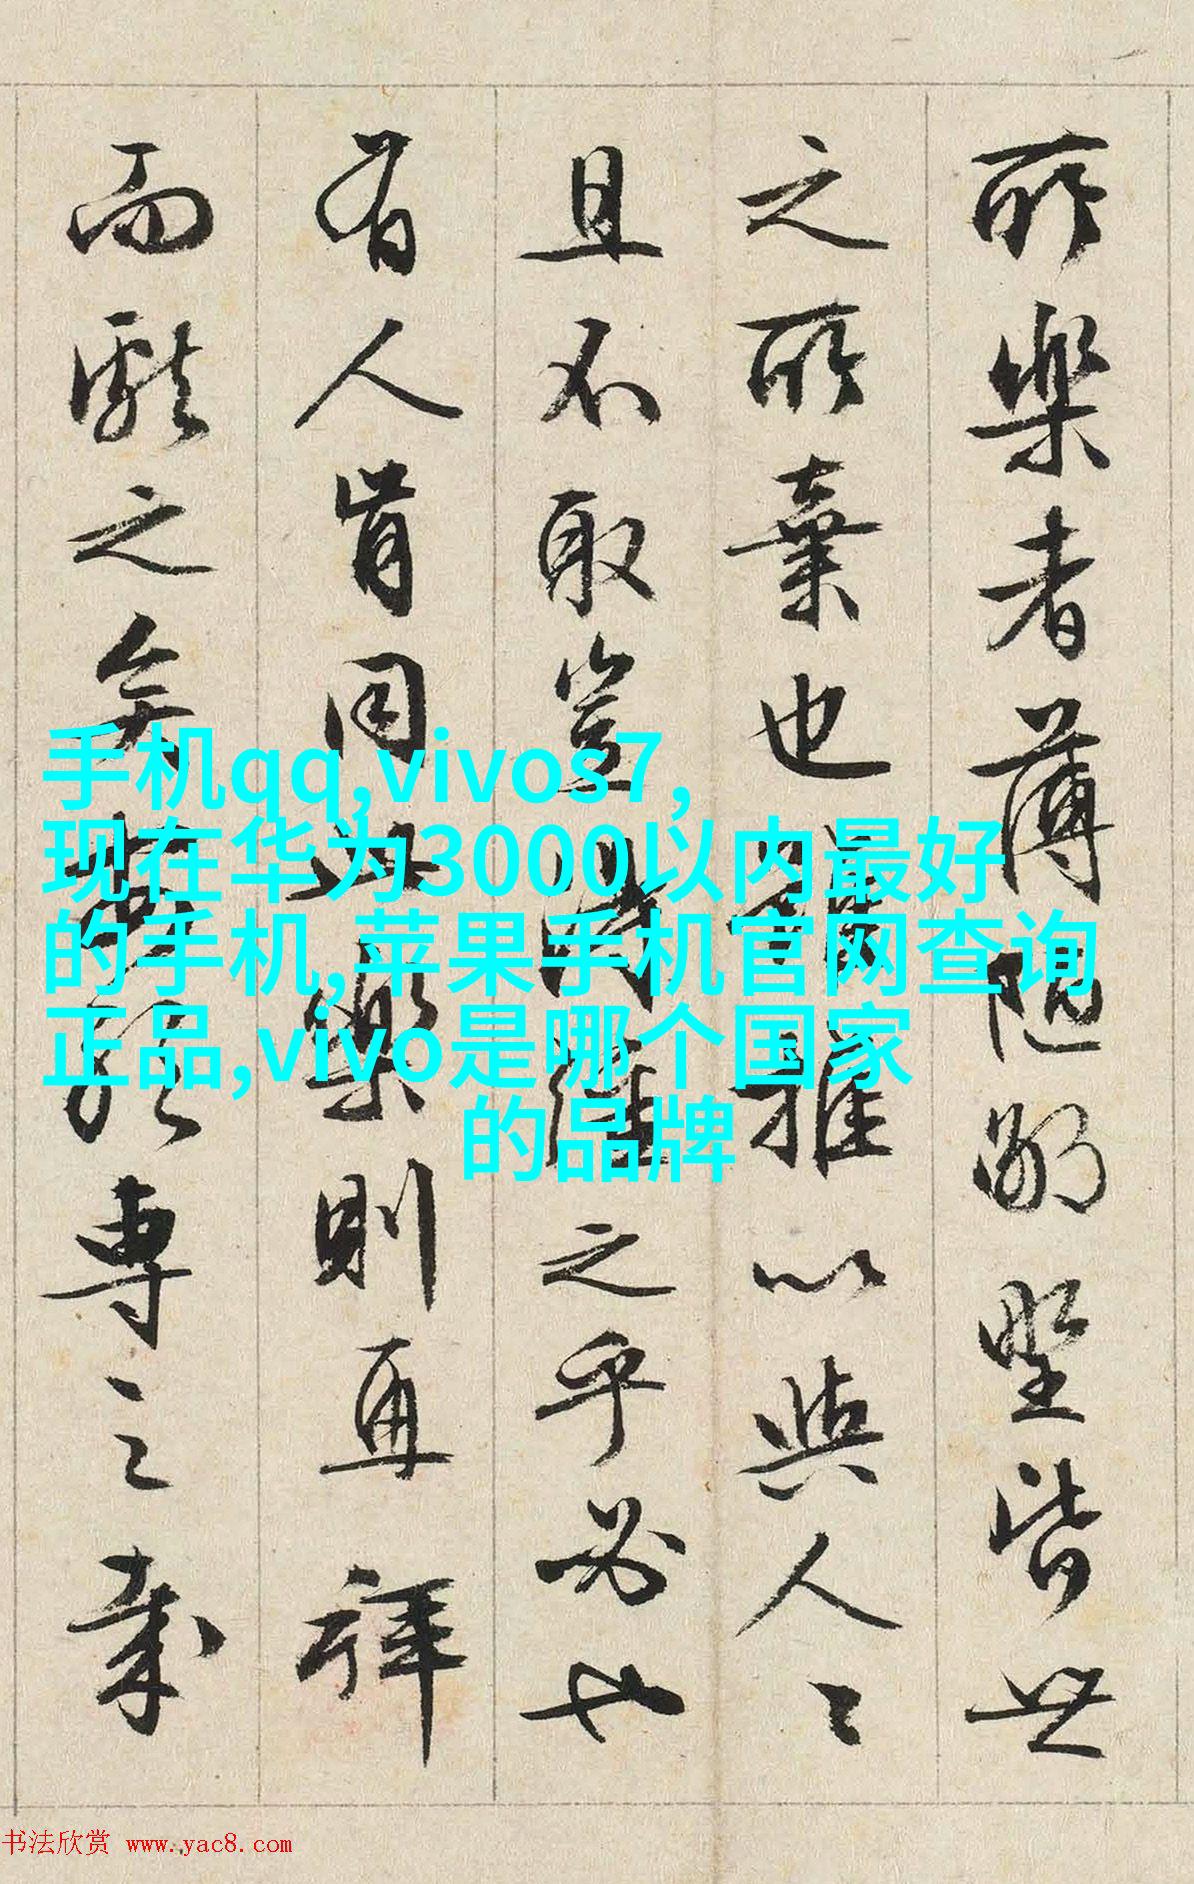 所樂者薄陋鄙野皆世
之所棄也雖推以與人〻
且不取豈得強之乎必也
有人肯同此樂則再拜
而獻之矣安敢專之哉
手机qq,vivos7,
现在华为3000以内最好
的手机,苹果手机官网查询
正品,vivo是哪个国家
的品牌
书法欣赏 www.yac8.com